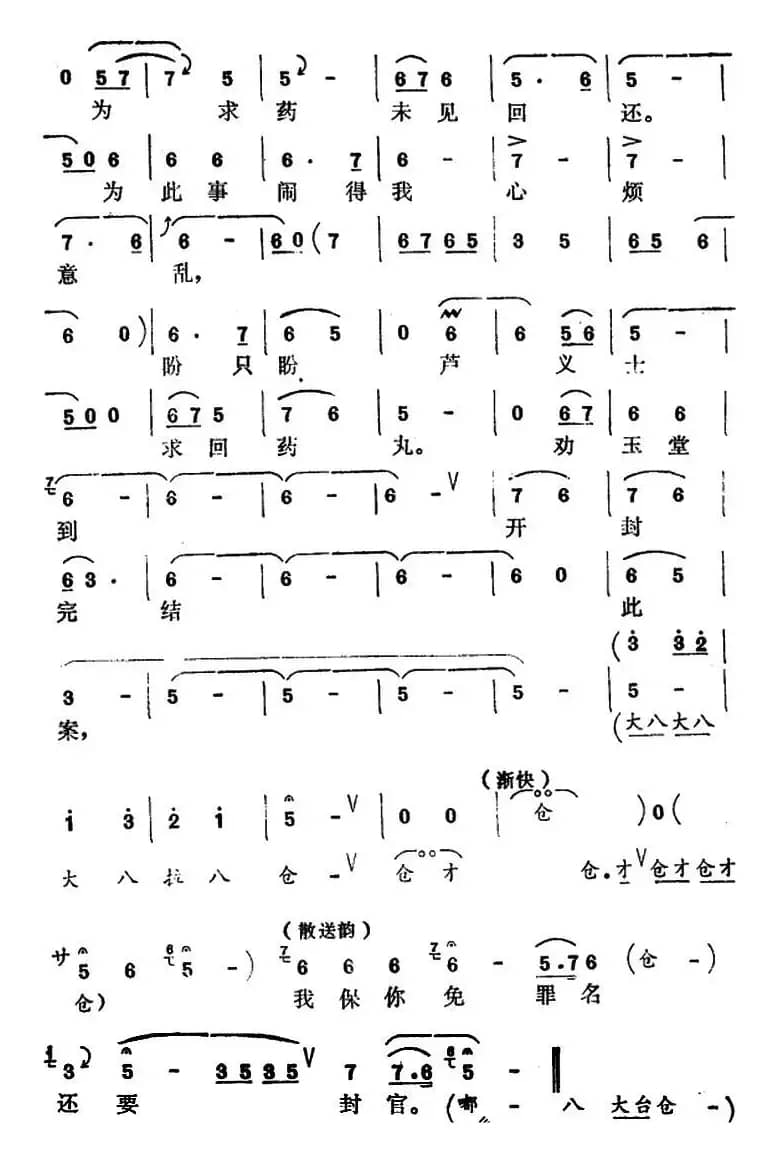 0 5 7 | 7 5 | 5 - | 6 7 6 | 5 · 6 | 5 - |
为 求 药 未 见 回 还。
5 0 6 | 6 6 | 6 · 7 | 6 - | 7 - | 7 - |
为 此 事 闹 得 我 心 烦
7 · 6 | 6 - | 6 0 ( 7 | 6 7 6 5 | 3 5 | 6 5 6 |
意 乱，
6 0 ) | 6 · 7 | 6 5 | 0 6 | 6 5 6 | 5 - |
盼 只 盼 芦 义 士
5 0 0 | 6 7 5 | 7 6 | 5 - | 0 6 7 | 6 6 |
求 回 药 丸。 劝 玉 堂
7 6 - | 6 - | 6 - | 6 - V | 7 6 | 7 6 |
到 开 封
6 3 · | 6 - | 6 - | 6 - | 6 0 | 6 5 |
完 结 此
( 3 3 2 |
3 - | 5 - | 5 - | 5 - | 5 - | 5 - |
案， (大八大八
(渐快)
1 3 | 2 1 | 5 - V | 0 0 | 仓 ) 0 (
大 八 拉 八 仓 - V 仓 才 仓 · 才 V 仓才仓才
(散送韵)
サ 5 6 6 5 - ) 7 6 6 6 7 6 - 5 · 7 6 (仓 -)
仓) 我 保 你 免 罪 名
1 3 5 - 3 5 3 5 V 7 7 · 6 6 5 - ‖
还 要 封 官。 (嘟 - 八 大台仓 -)